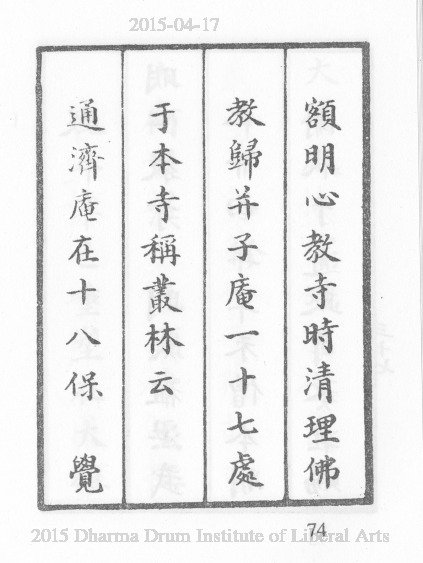 2015-04-17
額明心教寺時清理佛
教歸并子庵一十七處
于本寺稱叢林云
通濟庵在十八保　覺
74
2015 Dharma Drum Institute of Liberal Arts